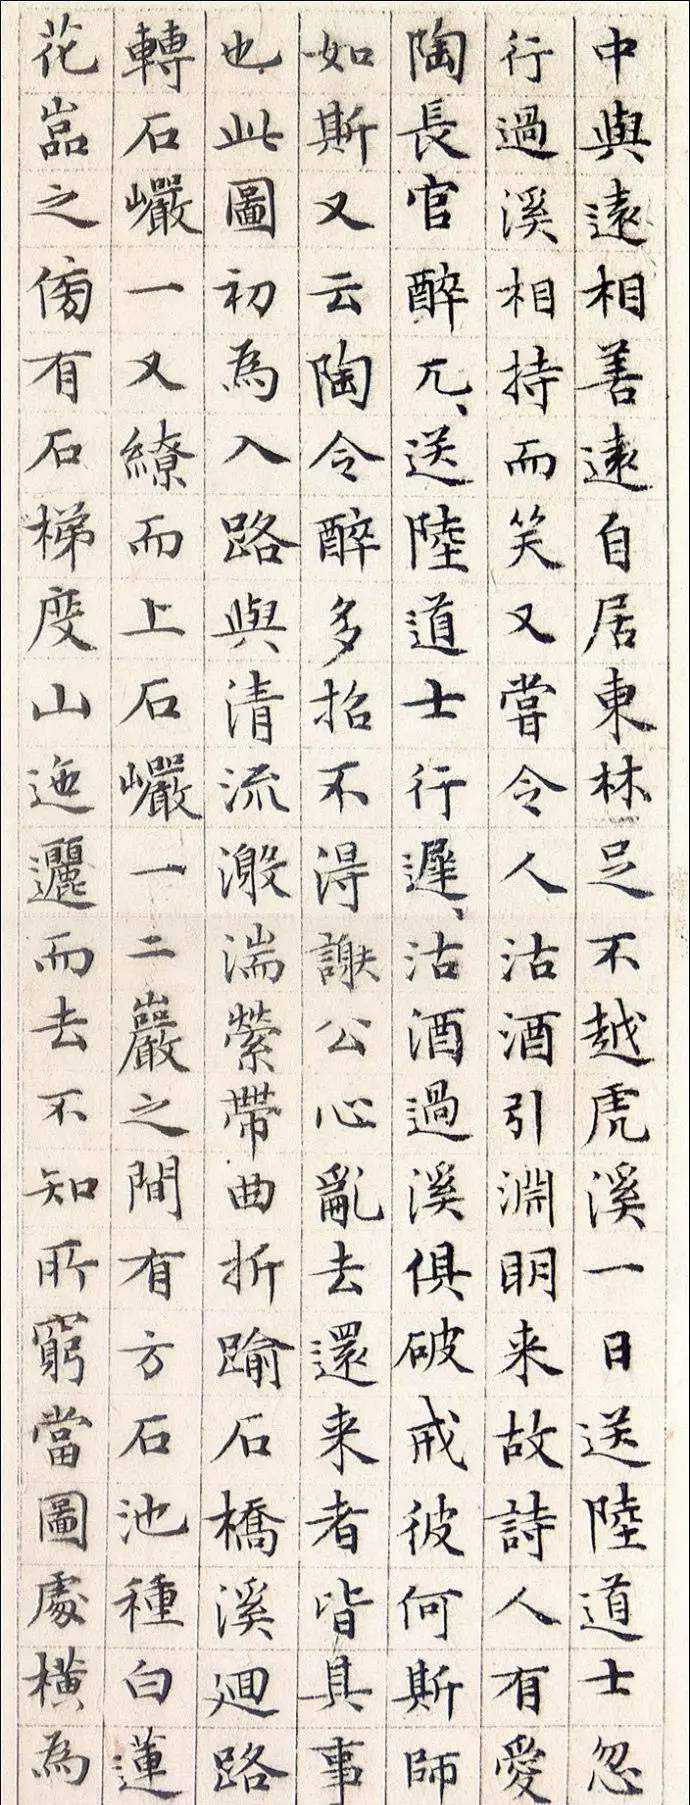 中與遠相善遠自居東林足不越虎溪一日送陸道士忽
行過溪相持而笑又嘗令人沽酒引淵明来故詩人有愛
陶長官醉兀、送陸道士行遲、沽酒過溪俱破戒彼何斯師
如斯又云陶令醉多招不得謝公心亂去還来者皆具事
也此圖初為入路與清流激湍縈帶曲折踰石橋溪迴路
轉石巗一又繚而上石巗一二巖之間有方石池種白蓮
花嵓之傍有石梯度山迤邐而去不知所窮當圖處橫為